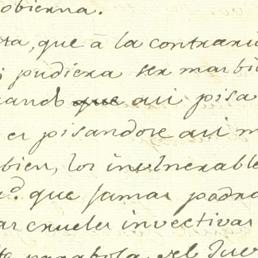 obierna.
ta, que à la contrari
i pudiera ser mas bi
ando que asi pisa
er pisandose asi m
bien, los invulnerable
ad. que jamas podra
as crueles invectivas
te parabola, del Juev